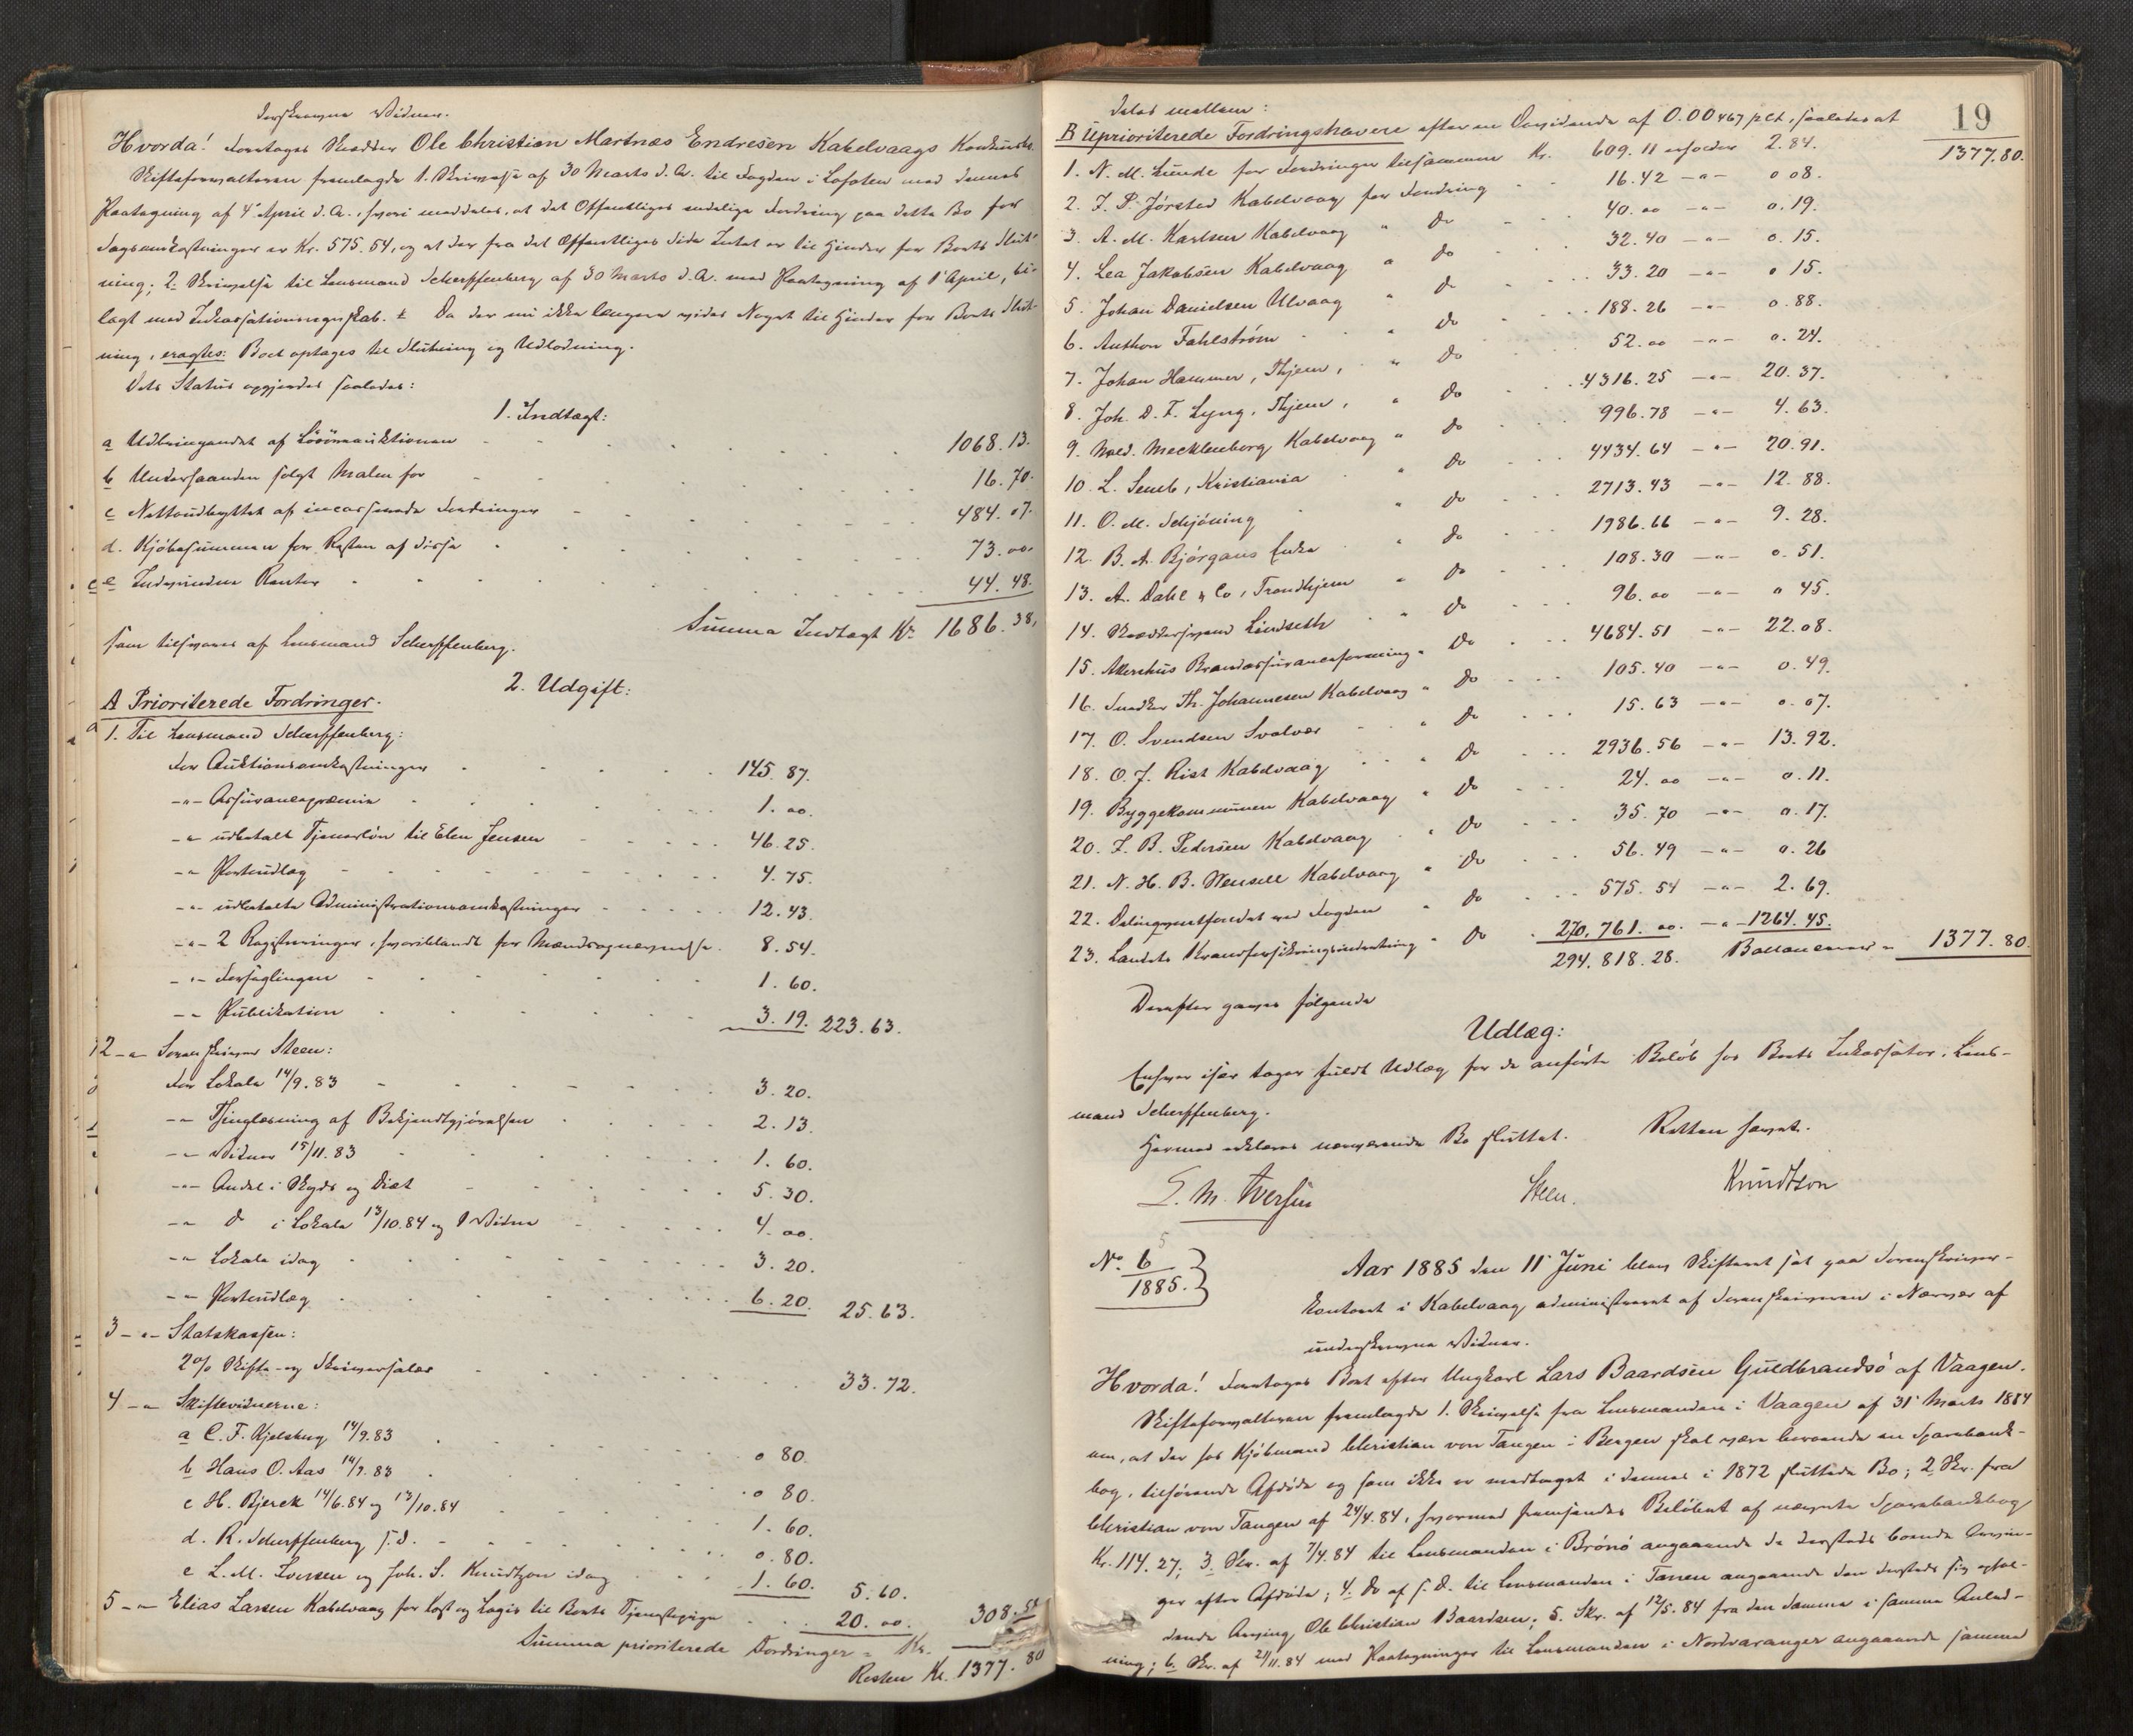 Forskrevne Vidner.
Hvorda! Foretages Snedker Ole Christian Martnæs Endresen Kabelvaags Konkursbo.
Skifteforvalteren fremlagde 1. Skrivelse af 30 Marts d. A. til Fogden i Lofoten med dennes
Paategning af 4' April d. A., hvori meddeles, at det Offentliges endelige Fordring paa dette Bo for
Sagsomkostninger er Kr. 575.54, og at der fra det Offentliges Side Intet er til Hinder for Boets Slut-
ning; 2. Skrivelse til Lensmand Scherpfenberg af 30 Marts d. A. med Paategning af 1' April, bi-
lagt med Inkassationsregnskab. ± Da der nu ikke længere vides Noget til Hinder for Boets Slut-
ning, eragtes: Boet optages til Slutning og Udlodning.
Dets Status opgjordes saaledes:
1. Indtægt:
a Udbringendet af Løsøreauktionen 1068.13.
b Underhaanden solgt Malm for 16.70.
c Nettoudbyttet af incasserede Fordringer 484.07.
d. Kjøbesummen for Resten af disse 73.00.
e Indvundne Renter 44.48.
Summa Indtægt Kr. 1686.38,
som tilsvares af Lensmand Scherpfenberg.
2. Udgift:
A Prioriterede Fordringer.
1. Til Lensmand Scherpfenberg:
For Auktionsomkostninger 145.87.
-"- Assurancepræmie 1.00.
-"- udbetalt Tjenerløn til Elen Jensen 46.25.
-"- Portoudlæg 4.75.
-"- udbetalte Administrationsomkostninger 12.43.
-"- 2 Registreringer, hvoriblandt for Mændsopnævnelse 8.54.
-"- Forseglingen 1.60.
-"- Publikation 3.19. 223.63.
2 -"- Sorenskriver Steen:
For Lokale 14/9.83 3.20.
-"- Thinglæsning af Bekjendtgjørelsen 2.13.
-"- Vidner 15/11.83 1.60.
-"- Andel i Skyds og Diæt 5.30.
-"- do i Lokale 13/10.84 og 1 Vidne 4.00.
-"- Lokale idag 3.20.
-"- Portoudlæg 6.20. 25.63.
3 -"- Statskassen:
2% Skifte- og Skriversalær 33.72.
4 -"- Skiftevidnerne:
a C. F. Kjelsberg 14/9.83 0 80.
b Hans O. Aas 14/9.83 0 80.
c H. Bjerck 14/6.84 og 13/10.84 1.60.
d. R. Scherpfenberg s.D. 0.80.
e L. M. Iversen og Joh. S. Knudtzon idag 1.60. 5.60.
5 -"- Elias Larsen Kabelvaag for Kost og Logis til Boets Tjenestepige 20.00. 308.58
Summa prioriterede Fordringer = Kr.
Resten Kr. 1377.80
19
deles mellem:
B Uprioriterede Fordringshavere efter en Dividende af 0.00467 pct, saaledes at 1377.80.
1. N. M. Lunde for Fordringer tilsammen Kr. 609.11 erholder 2.84.
2. J. P. Jørsted Kabelvaag for Fordring 16.42 -"- 0 08.
3. A. M. Karlsen Kabelvaag " do 40.00 -"- 0.19.
4. Lea Jakobsen Kabelvaag " do 32.40 -"- 0.15.
5. Johan Danielsen Ulvaag " do 33.20 -"- 0 15.
6. Anthon Fahlstrøm " do 188.26 -"- 0.88.
7. Johan Hammer, Thjem, " do 52.00 -"- 0.24.
8. Joh. D. F. Lyng, Thjem, " do 4316.25 -"- 20.37.
9. Nord. Mecklenborg Kabelvaag " do 996.78 -"- 4.63.
10. L. Semb, Kristiania " do 4434.64 -"- 20.91.
11. O. M. Schjøning " do 2713.43 -"- 12.88.
12. B. A. Bjørgans Enke " do 1986.66 -"- 9.28.
13. A. Dahl & Co, Trondhjem " do 108.30 -"- 0.51.
14. Skræddersvend Lindseth " do 96.00 -"- 0 45.
15. Akershus Brandassuranceforening " do 4684.51 -"- 22.08.
16. Snedker Th. Johannesen Kabelvaag " do 105.40 -"- 0.49.
17. O. Svendsen Svolvær " do 15.63 -"- 0.07.
18. O. J. Rist Kabelvaag " do 2936.56 -"- 13.92.
19. Byggekommunen Kabelvaag " do 24.00 -"- 0.11.
20. J. B. Pedersen Kabelvaag " do 35.70 -"- 0.17.
21. N. H. B. Wensell Kabelvaag " do 56.49 -"- 0.26
22. Delinqventfondet ved Fogden " do 575.54 -"- 2.69.
23. Landets Brandforsikringsindretning " do 270,761.00. -"- 1264.45.
294.818.28. Ballancerer = 1377.80
Derefter gaves følgende
Udlæg:
Enhver især tager fuldt Udlæg for de anførte Beløb hos Boets Inkassator, Lens-
mand Scherpfenberg.
Hermed erklæres nærværende Bo sluttet. Retten hævet.
L. M. Iversen Steen. Knudtzon
No. 6 5
1885.
Aar 1885 den 11' Juni blev Skifteret sat paa Sorenskriver-
kontoret i Kabelvaag, administreret af Sorenskriveren i Nærvær af
underskrevne Vidner.
Hvorda! Foretages Boet efter Ungkarl Lars Baardsen Guldbrandsø af Vaagen.
Skifteforvalteren fremlagde 1. Skrivelse fra Lensmanden i Vaagen af 31' Marts 1884
om, at der hos Kjøbmand Christian von Tangen i Bergen skal være beroende en Sparebank-
bog, tilhørende Afdøde og som ikke er medtaget i dennes i 1872 sluttede Bo; 2, Skr. fra
Christian von Tangen af 24/4.84, hvormed fremsendes Beløbet af nævnte Sparebankbog
Kr. 114.27; 3. Skr. af 7/4.84 til Lensmanden i Brønø angaaende de dersteds boende Arvin-
ger efter Afdøde; 4. do af s.D. til Lensmanden i Tanen angaaende den dersteds sig ophol-
dende Arving Ole Christian Baardsen; 5. Skr. af 12/5.84 fra den Samme i samme Anled-
ning; 6. Skr. af 21/11.84 med Paategninger til Lensmanden i Nordvaranger angaaende samme